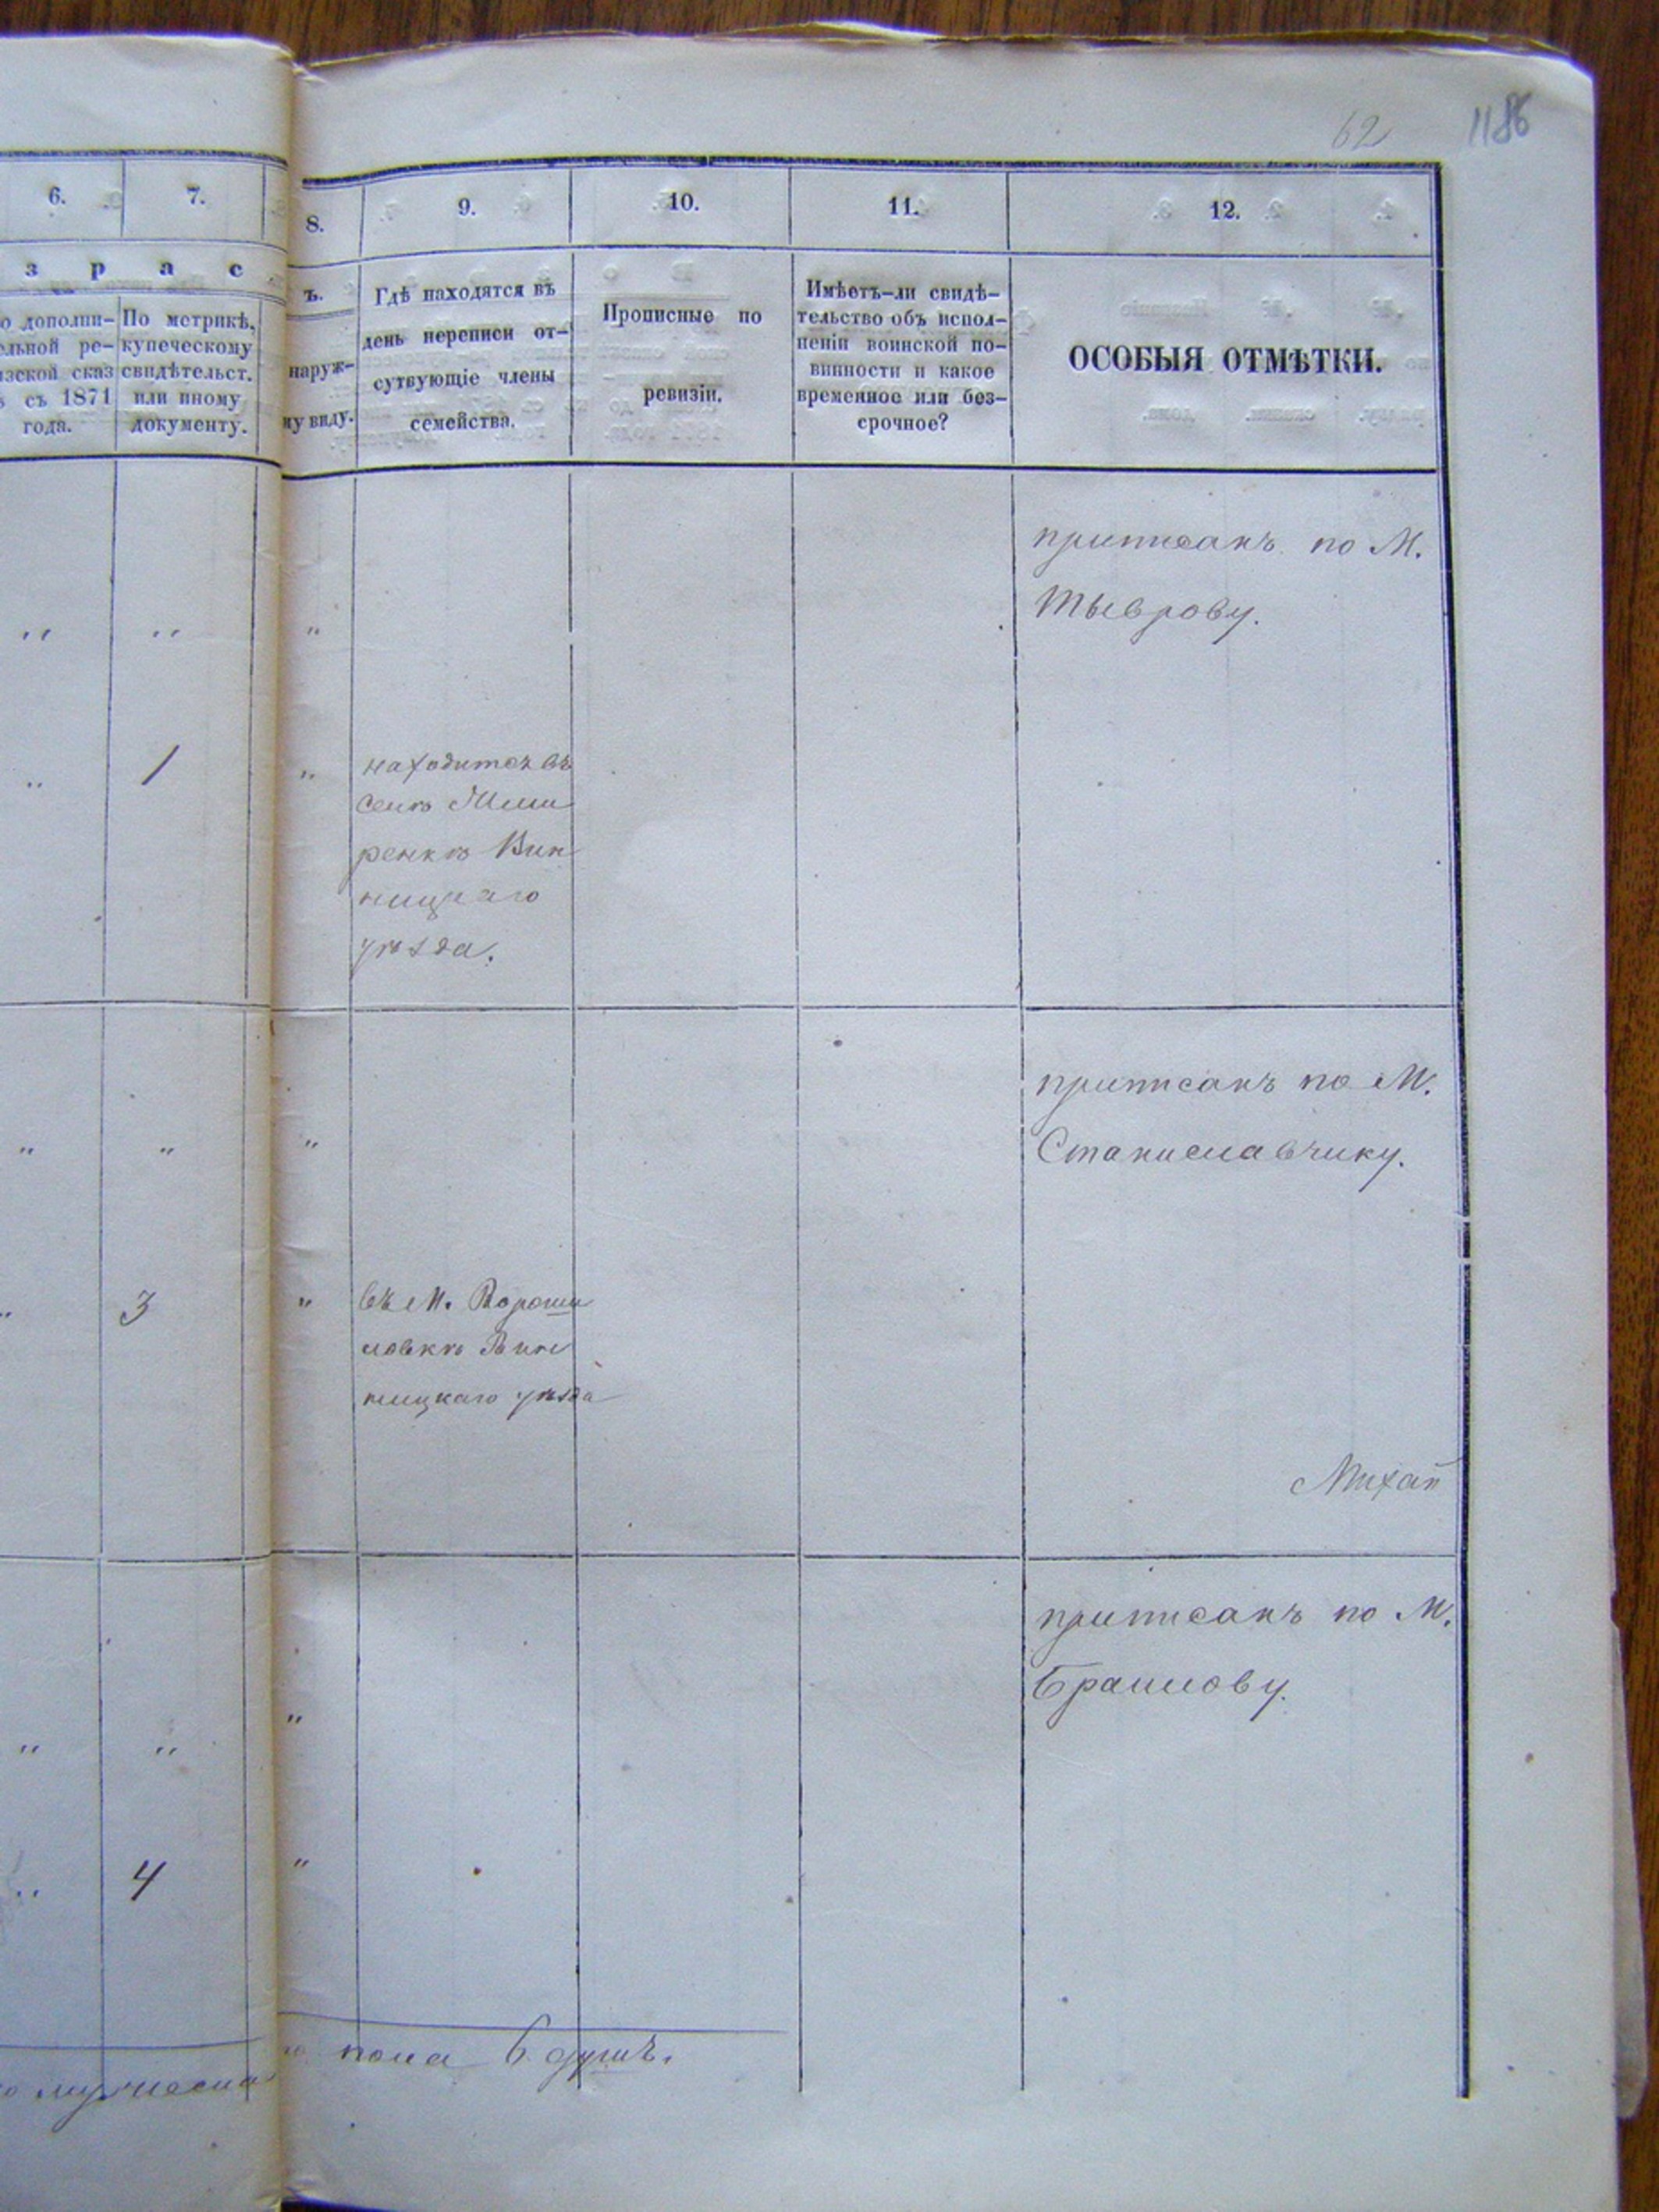 62 1186
6. 7. 8. 9. 10. 11. 12.
з р а с
о дополни-
ельной ре-
изской сказ
ѣ съ 1871
года.
По метрикѣ,
купеческому
свидѣтельст.
или иному
документу.
ъ.
наруж-
му виду.
Гдѣ находятся въ
день переписи от-
сутвующіе члены
семейства.
Прописные по
ревизіи.
Имѣетъ-ли свидѣ-
тельство объ испол-
неніи воинской по-
винности и какое
временное или без-
срочное?
ОСОБЫЯ ОТМѢТКИ.
приписанъ по М.
Тыврову.
" " "
" 1 "
находится въ
селѣ
ренкѣ Вин
ницкаго
уѣзда.
приписанъ по М.
Станиславчику.
" " "
" 3 "
въ М. Вороши
ловкѣ Вин
ницкаго уѣзда
Михал
приписанъ по М.
Браилову.
" " "
" 4 "
о мужеска
го пола 6 душъ.